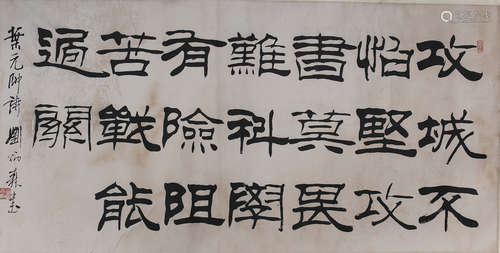 攻城不
怕堅攻
書莫畏
難科學
有險阻
苦戰能
過關
葉元帥詩 劉炳森書